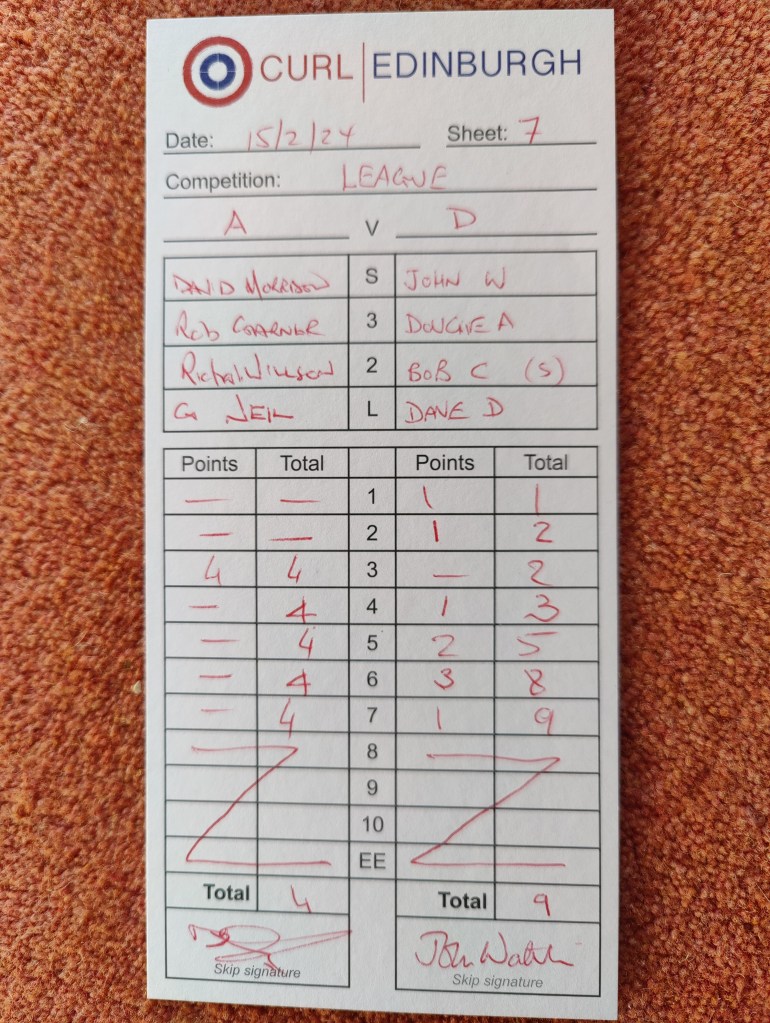 CURL EDINBURGH
Date: 15/2/24 Sheet: 7
Competition: LEAGUE
A V D
DAVID MORRISON S JOHN W
Rob GARNER 3 DOUGIE A
Richard Wilson 2 BOB C (S)
G NEIL L DAVE D
Points Total Points Total
— — 1 1 1
— — 2 1 2
4 4 3 — 2
— 4 4 1 3
— 4 5 2 5
— 4 6 3 8
— 4 7 1 9
8
9
10
EE
Total 4 Total 9
John
Skip signature Skip signature